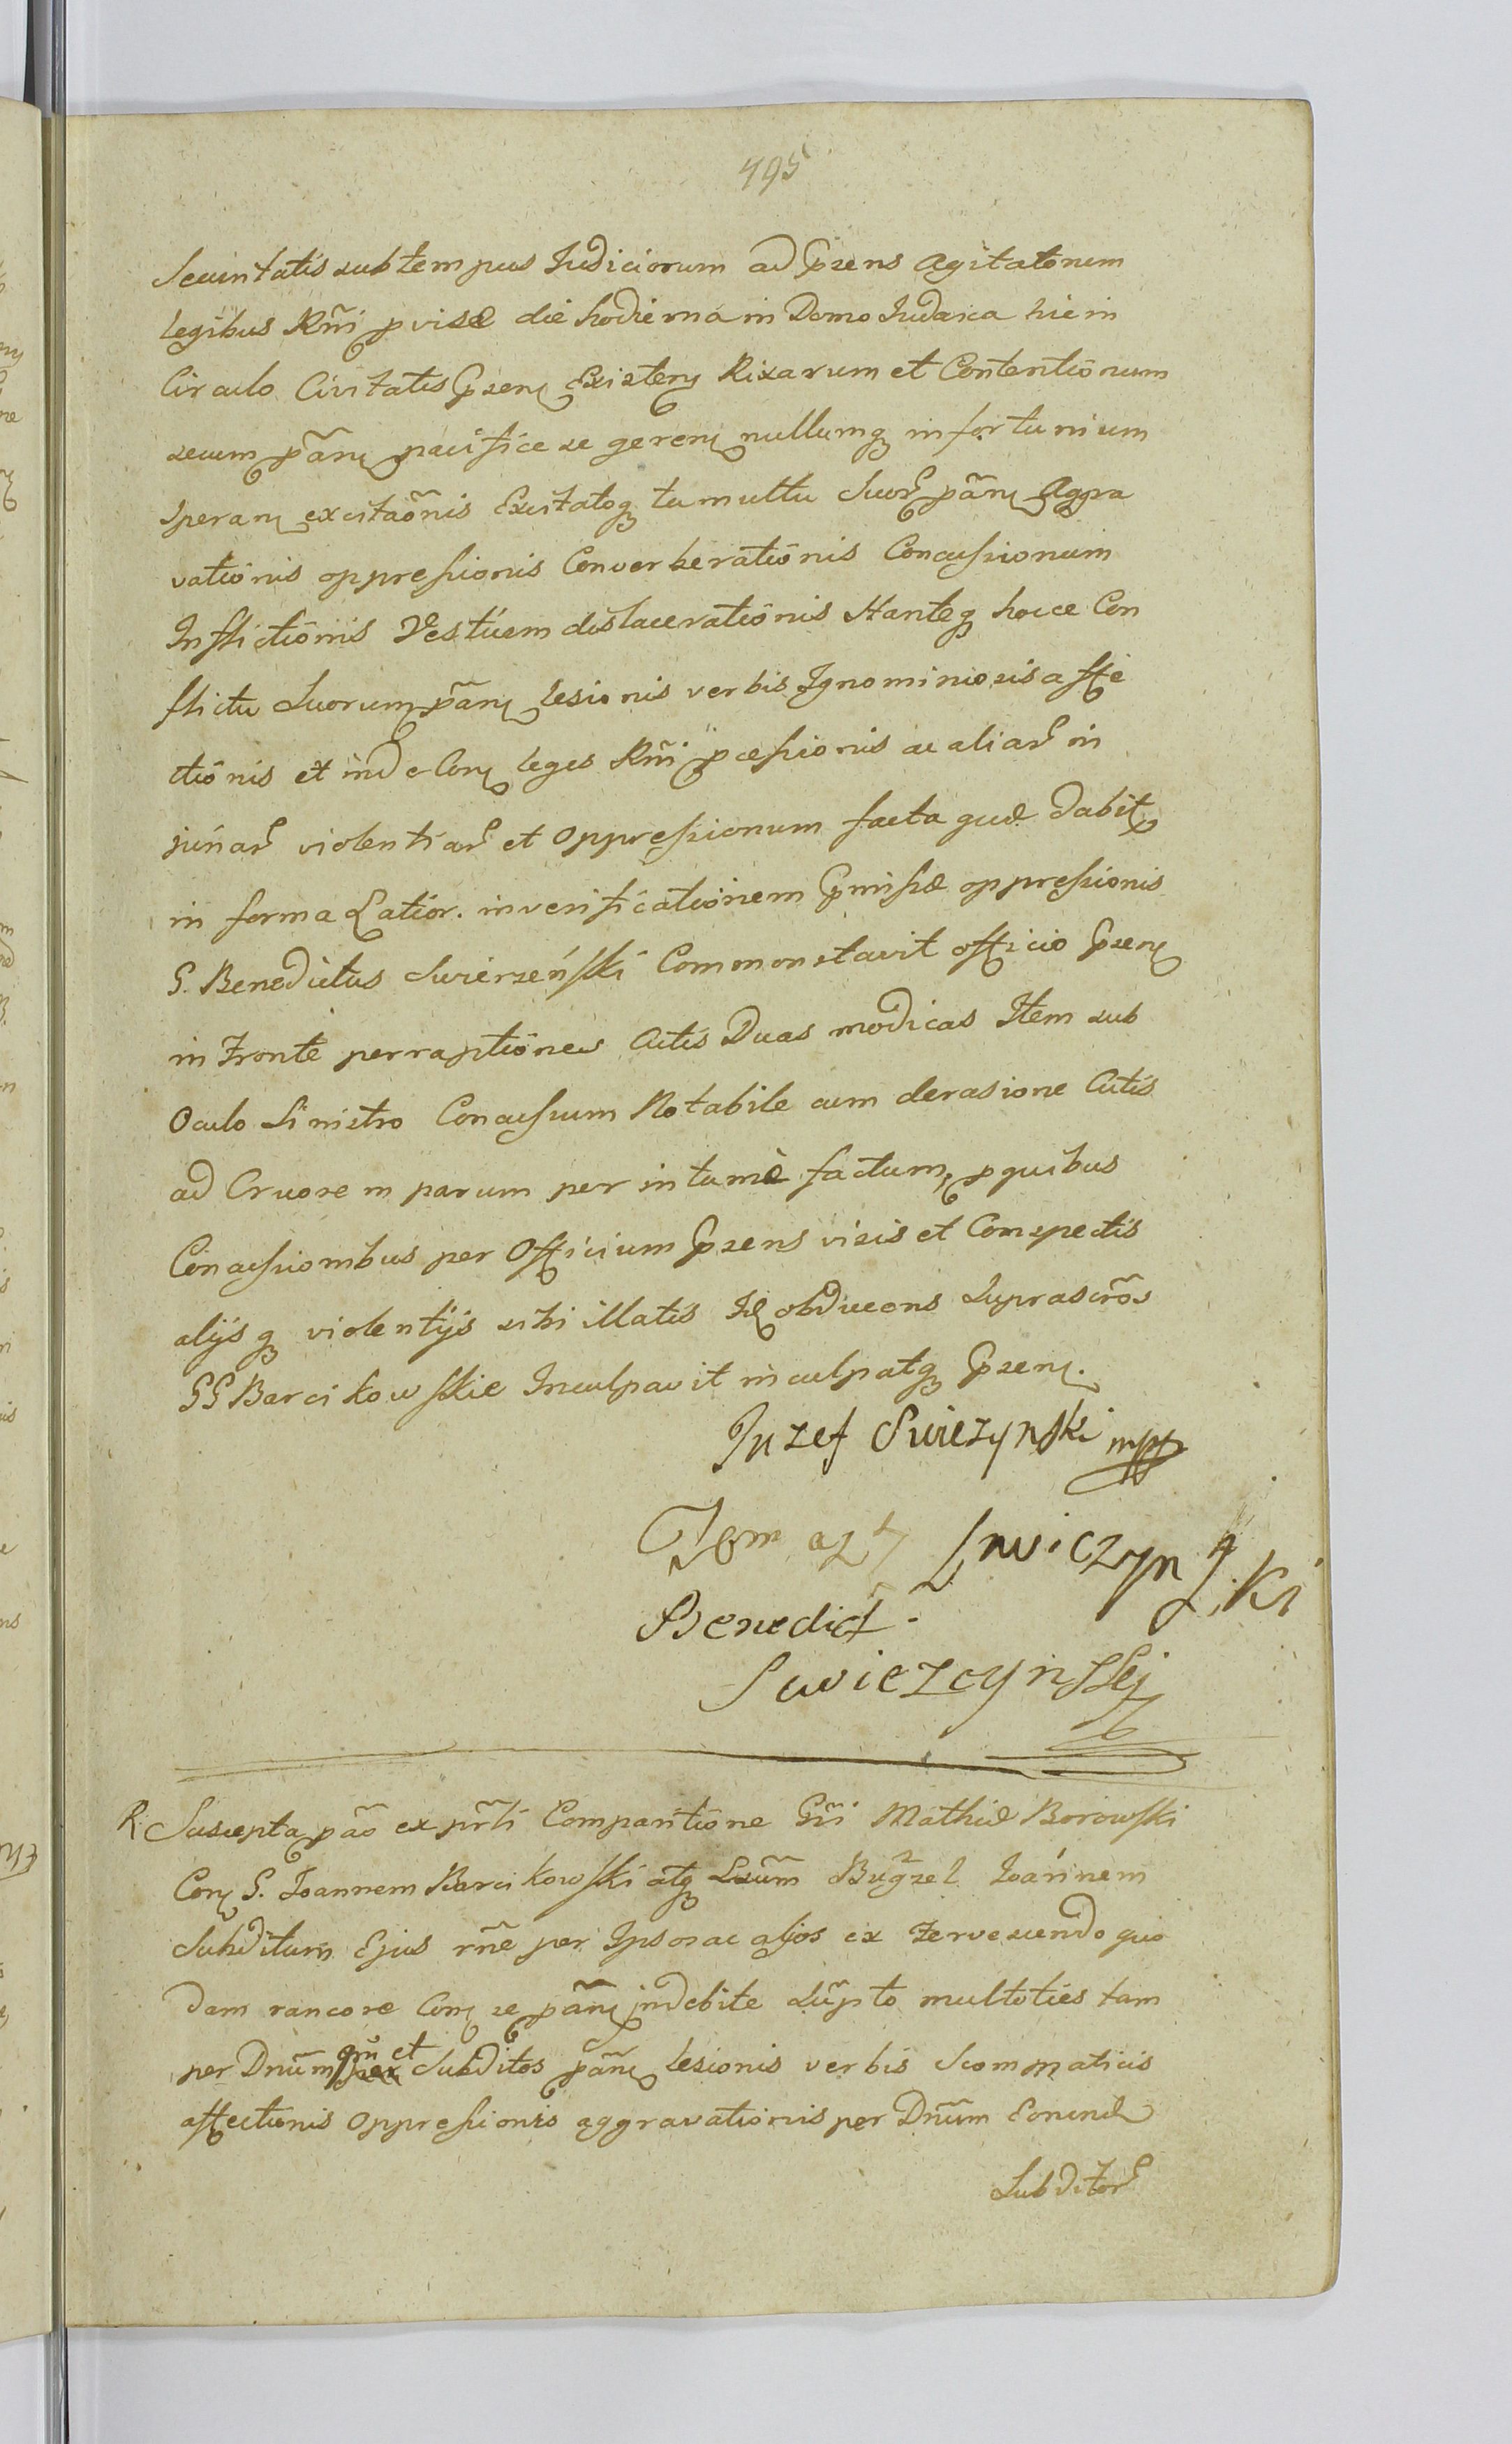 495
Securitatis sub tempus Judiciorum ad Pรฺsens Agitatorum
legibus Rñi pvisæ die hodierna in Domo Judaica hic in
Circulo Civitatis Psen Existen Rixarum et Contentionum
secum pãn pacifice se geren nullumq infortunium
speran excitaõnis Excitatoq tumultu Suor pãn Aggra
vationis oppressionis Converberationis Concussionum
Inflictionis Vestium dislacerationis Stanteq hocce Con
flictu Suorum pãn lesionis verbis Ignominiosis affe
ctionis et inde Con leges Rñi pcessionis ac aliar in
juriar violentiar et oppressionum facta quæ dabit
in forma Latior. in verificationem Pmissæ oppressionis
G. Benedictus Swierzeński Commonstravit officio Psen
in Fronte perraptiones Cutis Duas modicas Item sub
Oculo Sinistro Concussum Notabile cum derasione Cutis
ad Cruorem parum per intumê factum, p quibus
Concussionibus per Officium Psens visis et Conspectis
alijsq violentijs sibi illatis Id obducens Suprascrõs
GG Barcikowskie Inculpavit inculpatq Psen.
Juzef Swiezynski mpp
Tomasz Swiczynski
Benedict
Swiezcynskj
R. Suscepta pão ex prli Comparitione Gñi Mathiæ Borowski
Con G. Joannem Barcikowski atq Bugzel Joannem
Subditum Ejus rñe per Ipsos ac alios ex fervescendo quo
dam rancore Con se pãn indebite sũpto multoties tam
per Dnum qm et Subditos pãn lesionis verbis Scommaticis
affectionis oppressionis aggravationis per Dnum Eorund
Subditor